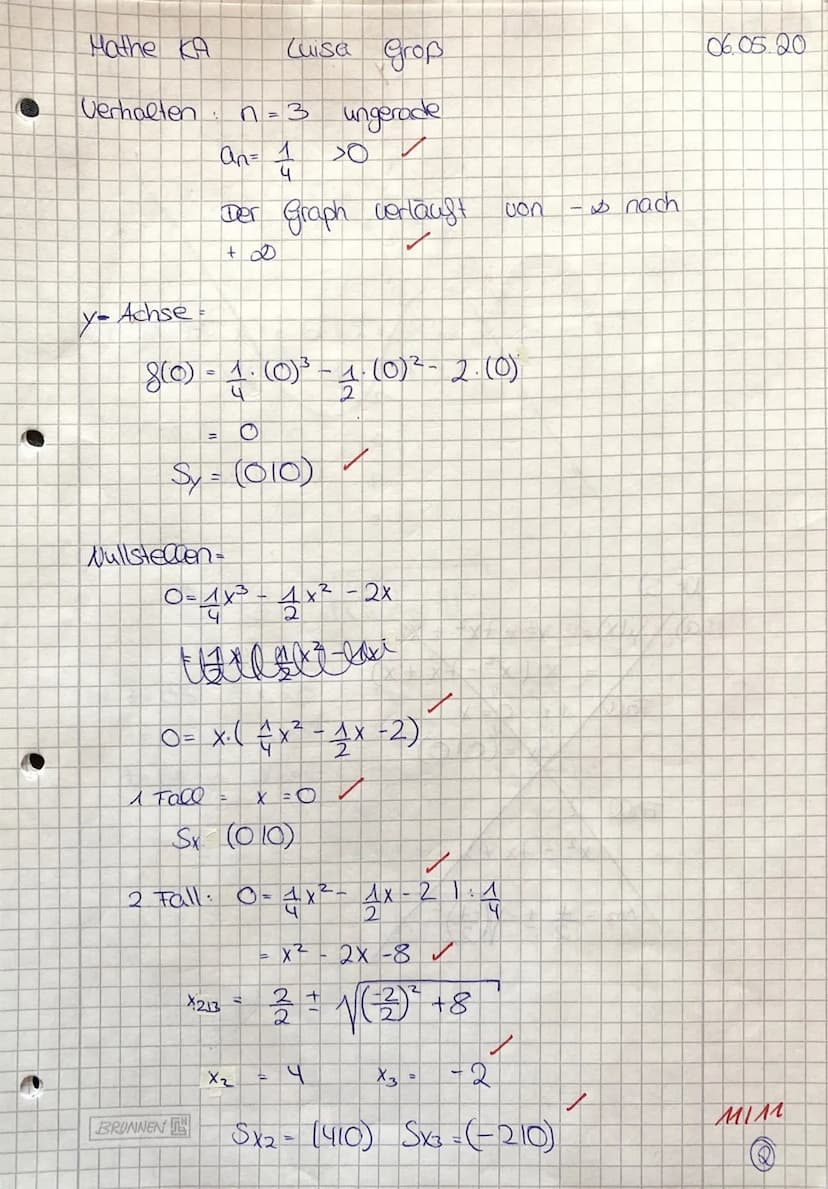 Mathe KA Luisa Groß 06.05.20
Verhalten: n = 3 ungerade
an = 1/4 >0 ✓
Der Graph verläuft von -∞ nach
+ ∞ ✓
y-Achse =
f(0) = 1/4 · (0)³ - 1/2 · (0)² - 2 · (0)
= 0
Sy = (0|0) ✓
Nullstellen =
0 = 1/4 x³ - 1/2 x² - 2x
0 = x·( 1/4 x² - 1/2 x - 2) ✓
1 Fall = x = 0 ✓
Sx (0|0)
2 Fall: 0 = 1/4 x² - 1/2 x - 2 | : 1/4 ✓
= x² - 2x - 8 ✓
x2|3 = 2/2 ± √((-2/2)² + 8)
x2 = 4 x3 = -2 ✓
Sx2 = (4|0) Sx3 = (-2|0) ✓
11/11
BRUNNEN